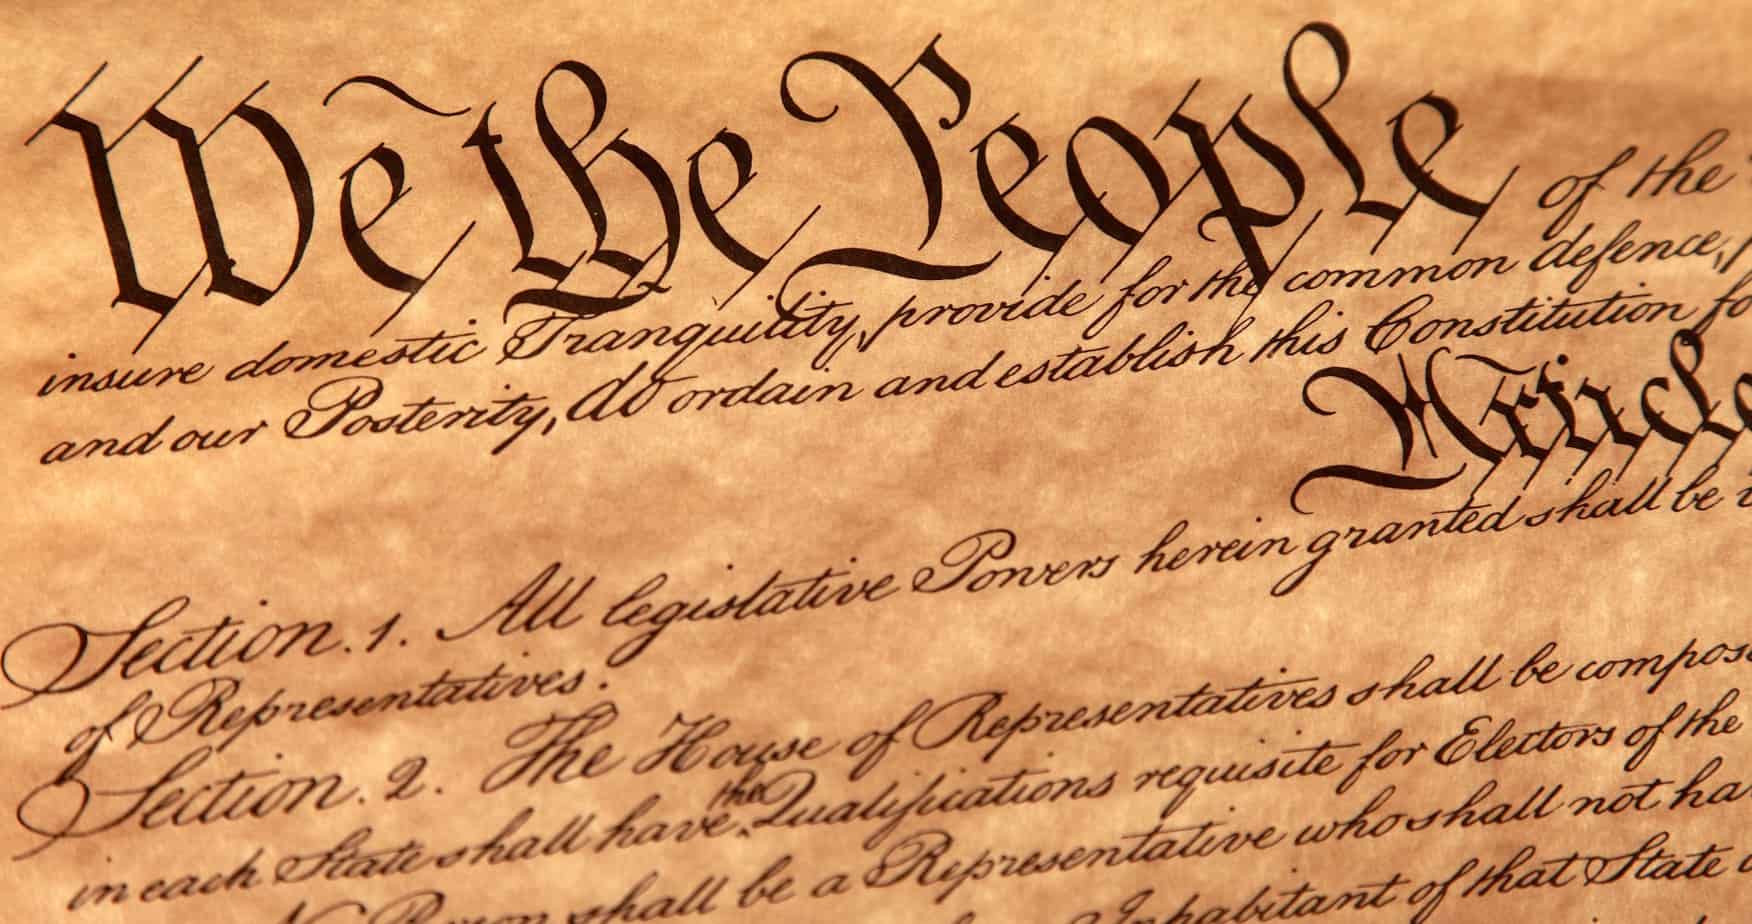 We the People of the
insure domestic Tranquility, provide for the common defence,
and our Posterity, do ordain and establish this Constitution
Article
Section. 1. All legislative Powers herein granted shall be
of Representatives.
Section. 2. The House of Representatives shall be
the
in each State shall have Qualifications requisite for Electors of the
shall be a Representative who shall not
Inhabitant of that State